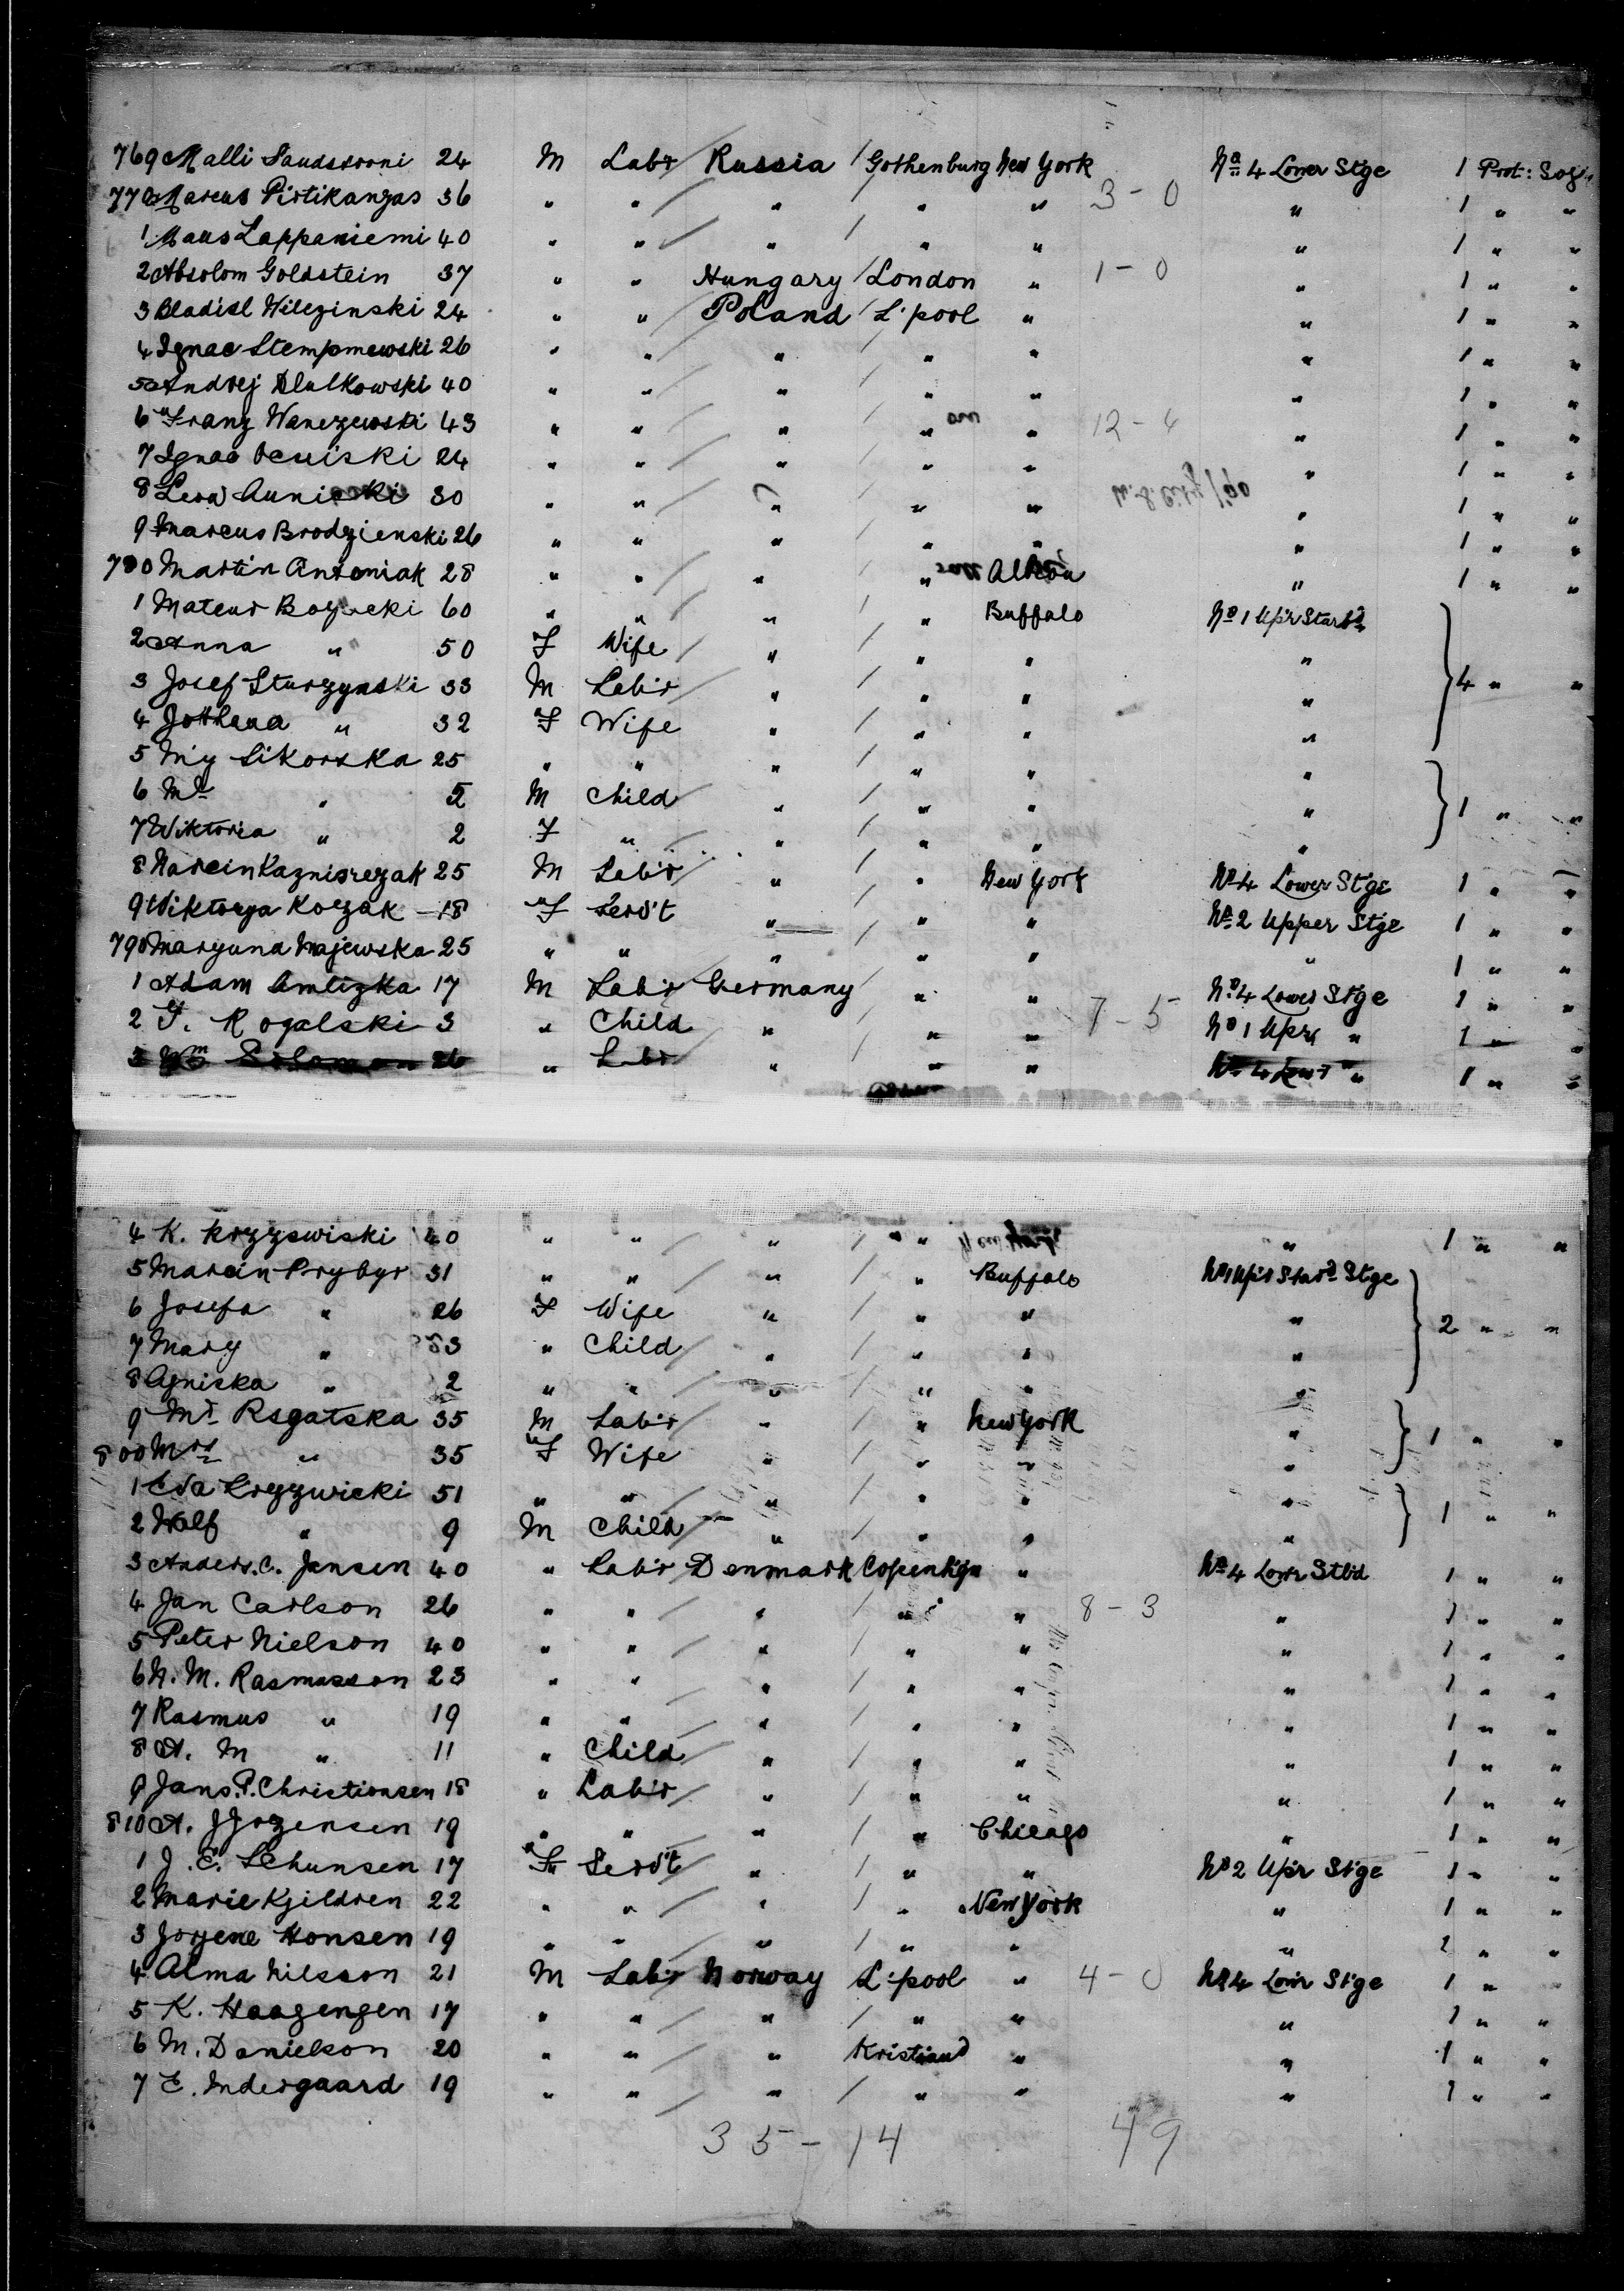 769 Malli Saudsrooni 24 M Labr Russia / Gothenburg New York No 4 Lower Stge 1 Prot: Sog
770 Marcus Pirtikangas 36 " " / " / " " 3 - 0 " 1 " "
1 Maus Lappaniemi 40 " " / " / " " " 1 " "
2 Absolom Goldstein 37 " " Hungary / London " 1 - 0 " 1 " "
3 Bladisl Wilezinski 24 " " Poland / L'pool " " 1 " "
4 Ignac Stempmewski 26 " " / " / " " " 1 " "
5 Andrej Dlulkowski 40 " " / " / " " " 1 " "
6 Franz Wanezewski 43 " " / " / " " 12 - 4 " 1 " "
7 Ignac 24 " " / " / " " " 1 " "
8 30 " " / " / " " " 1 " "
9 Marcus Brodzienski 26 " " / " / " " " 1 " "
780 Martin Antoniak 28 " " / " / " " 1 " "
1 Mateus 60 " " / " / " Buffalo No 1 Up'r Starb'd
2 Anna " 50 F Wife / " / " " "
3 Josef Sturzynski 33 M Lab'r / " / " " " 4 " "
4 Jothana " 32 F Wife / " / " " "
5 My Sikorska 25 " " / " / " " "
6 Mr " 5 M Child / " / " " " 1 " "
7 Wiktoria " 2 F " / " / " " "
8 Marcin Kaznisrezak 25 M Lab'r / " / " New York No 4 Lower Stge 1 " "
9 Wiktorya Kozak 18 F Serv't / " / " " No 2 Upper Stge 1 " "
790 Maryuna Majewska 25 " " / " / " " " 1 " "
1 Adam Amlizka 17 M Lab'r Germany / " " No 4 Lower Stge 1 " "
2 F. Rogalski 3 " Child / " / " " 7 - 5 No 1 Upr " 1 "
3 Wm Solomon 26 " Labr " / " " No 4 Low'r " 1 " "
4 K. Krzyzswiski 40 " " / " / " New York " 1 " "
5 Marcin Prybyr 31 " " / " / " Buffalo No 1 Up'r Starb'd Stge
6 Josefa " 26 F Wife / " / " " " 2 " "
7 Mary " 3 " Child / " / " " "
8 Agniska " 2 " " / " / " " "
9 Mr Rsgatska 35 M Lab'r / " / " New York " 1 " "
800 Mrs " 35 F Wife / " / " " "
1 Eva Kryzwicki 51 " " / " / " " " 1 " "
2 Wolf " 9 M Child / " / " " "
3 Anders. C. Jensen 40 " Lab'r Denmark Copenh'gn " No 4 Low'r Stbd 1 " "
4 Jan Carlson 26 " " / " / " " 8 - 3 " 1 " "
5 Peter Nielson 40 " " / " / " " " 1 " "
6 N. M. Rasmusson 23 " " / " / " " " 1 " "
7 Rasmus " 19 " " / " / " " " 1 " "
8 A. M " 11 " Child / " / " " " 1 " "
9 Jans. P. Christiansen 18 " Lab'r / " / " " " 1 " "
810 A. Jjrgensen 19 " " / " / " Chicago " 1 " "
1 J. E. Schunsen 17 F Serv't / " / " " No 2 Up'r Stge 1 " "
2 Marie Kjildren 22 " " / " / " New York " 1 " "
3 Jorjene Honsen 19 " " / " / " " " 1 " "
4 Alma Nilsson 21 M Lab'r Norway L'pool " 4 - 0 No 4 Low'r Stge 1 " "
5 K. Haagengen 17 " " / " / " " " 1 " "
6 M. Danielson 20 " " / " Kristians " " 1 " "
7 E. Indergaard 19 " " / " / " " " 1 " "
35 - 14 49